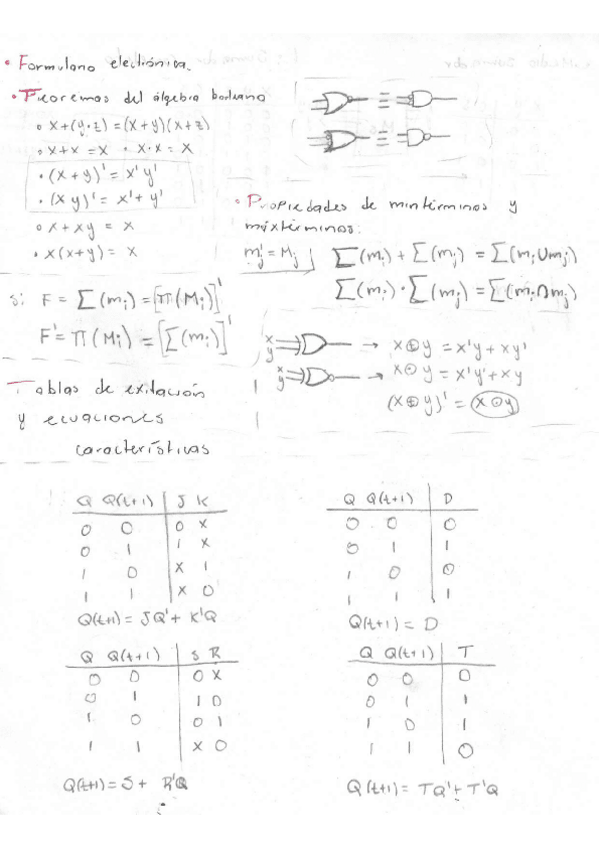 • Formulario electrónica.
• Teoremas del álgebra booleano
o x+(y·z) = (x+y)(x+z)
o x+x = x • x·x = x
• (x + y)' = x'y'
• (xy)' = x'+ y'
o x + xy = x
• x(x+y) = x
• Propiedades de mintérminos y
máxtérminos:
m'j = Mj
∑(mi) + ∑(mj) = ∑(mi ∪ mj)
∑(mi) · ∑(mj) = ∑(mi ∩ mj)
si F = ∑(mi) = [π(Mi)]'
F' = π(Mi) = [∑(mi)]'
x
y
→ x⊕y = x'y + xy'
x
y
→ x⊙y = x'y' + xy
(x⊕y)' = x⊙y
Tablas de exitación
y ecuaciones
características
Q Q(t+1) J K
0 0 0 x
0 1 1 x
1 0 x 1
1 1 x 0
Q(t+1) = JQ' + K'Q
Q Q(t+1) D
0 0 0
0 1 1
1 0 0
1 1 1
Q(t+1) = D
Q Q(t+1) S R
0 0 0 x
0 1 1 0
1 0 0 1
1 1 x 0
Q(t+1) = S + R'Q
Q Q(t+1) T
0 0 0
0 1 1
1 0 1
1 1 0
Q(t+1) = TQ' + T'Q